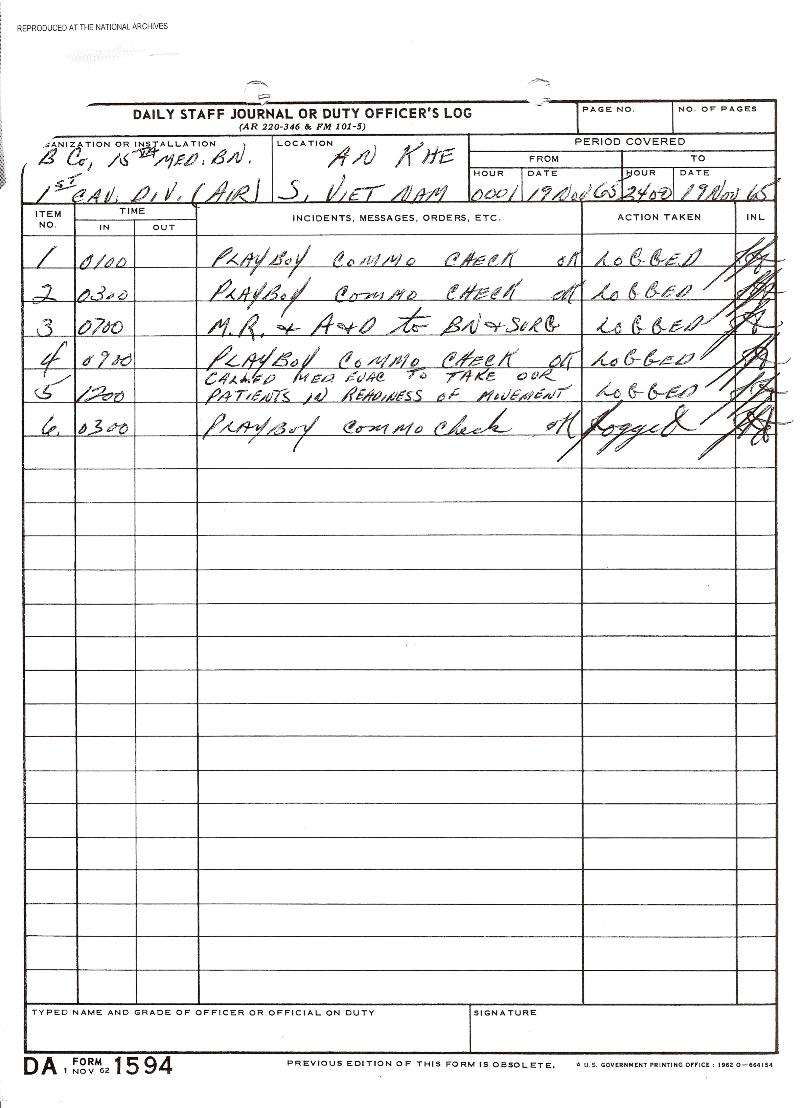 REPRODUCED AT THE NATIONAL ARCHIVES
DAILY STAFF JOURNAL OR DUTY OFFICER'S LOG
(AR 220-346 & FM 101-5)
PAGE NO.
NO. OF PAGES
GANIZATION OR INSTALLATION
B Co, 15th MED. BN.
1ST CAV. DIV. (AIR)
LOCATION
AN KHE
S. VIET NAM
PERIOD COVERED
FROM
TO
HOUR
DATE
HOUR
DATE
0001
19 Nov 65
2400
19 Nov 65
ITEM NO.
TIME
IN
OUT
INCIDENTS, MESSAGES, ORDERS, ETC.
ACTION TAKEN
INL
1 0100 PLAYBOY COMMO CHECK OK LOGGED
2 0300 PLAYBOY COMMO CHECK OK LOGGED
3 0700 M.R. & A&D to BN & SURG LOGGED
4 0900 PLAYBOY COMMO CHECK OK LOGGED
CALLED MED EVAC TO TAKE OUR
5 1200 PATIENTS IN READINESS OF MOVEMENT LOGGED
6. 0300 PLAYBOY COMMO Check OK Logged
TYPED NAME AND GRADE OF OFFICER OR OFFICIAL ON DUTY
SIGNATURE
DA FORM 1 NOV 62 1594
PREVIOUS EDITION OF THIS FORM IS OBSOLETE.
* U.S. GOVERNMENT PRINTING OFFICE : 1962 O—664154